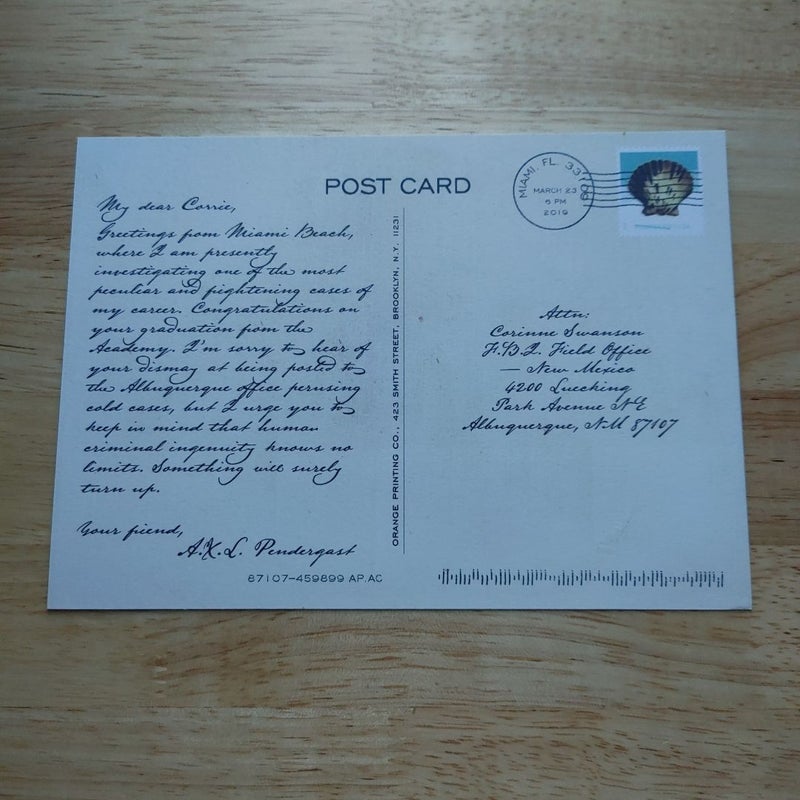 POST CARD
MIAMI, FL. 33706
MARCH 23
6 PM
2019
My dear Corrie,
Greetings from Miami Beach,
where I am presently
investigating one of the most
peculiar and frightening cases of
my career. Congratulations on
your graduation from the
Academy. I'm sorry to hear of
your dismay at being posted to
the Albuquerque office perusing
cold cases, but I urge you to
keep in mind that human
criminal ingenuity knows no
limits. Something will surely
turn up.
Your friend,
A.X.L. Pendergast
87107-459899 AP.AC
ORANGE PRINTING CO., 423 SMITH STREET, BROOKLYN, N.Y. 11231
Attn:
Corinne Swanson
F.B.I. Field Office
— New Mexico
4200 Luecking
Park Avenue NE
Albuquerque, NM 87107